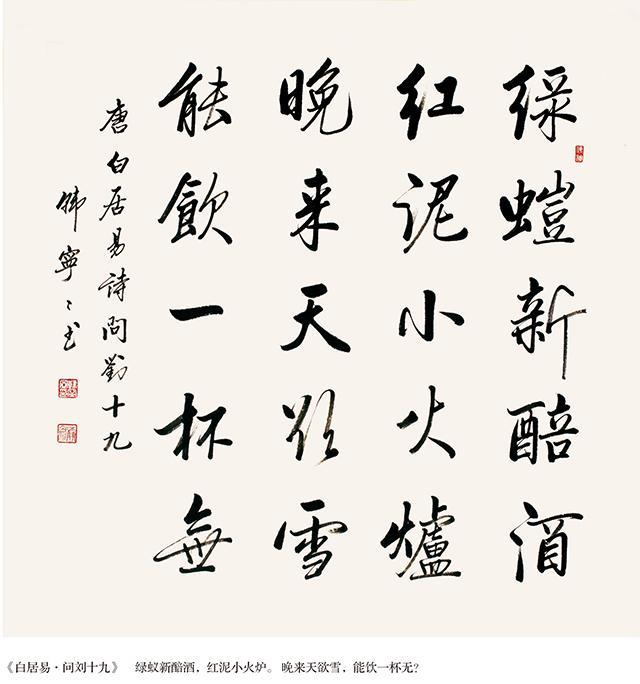 绿螘新醅酒
红泥小火爐
晚来天欲雪
能飲一杯無
唐白居易詩問劉十九
韩寧々书
《白居易·问刘十九》 绿蚁新醅酒，红泥小火炉。晚来天欲雪，能饮一杯无？